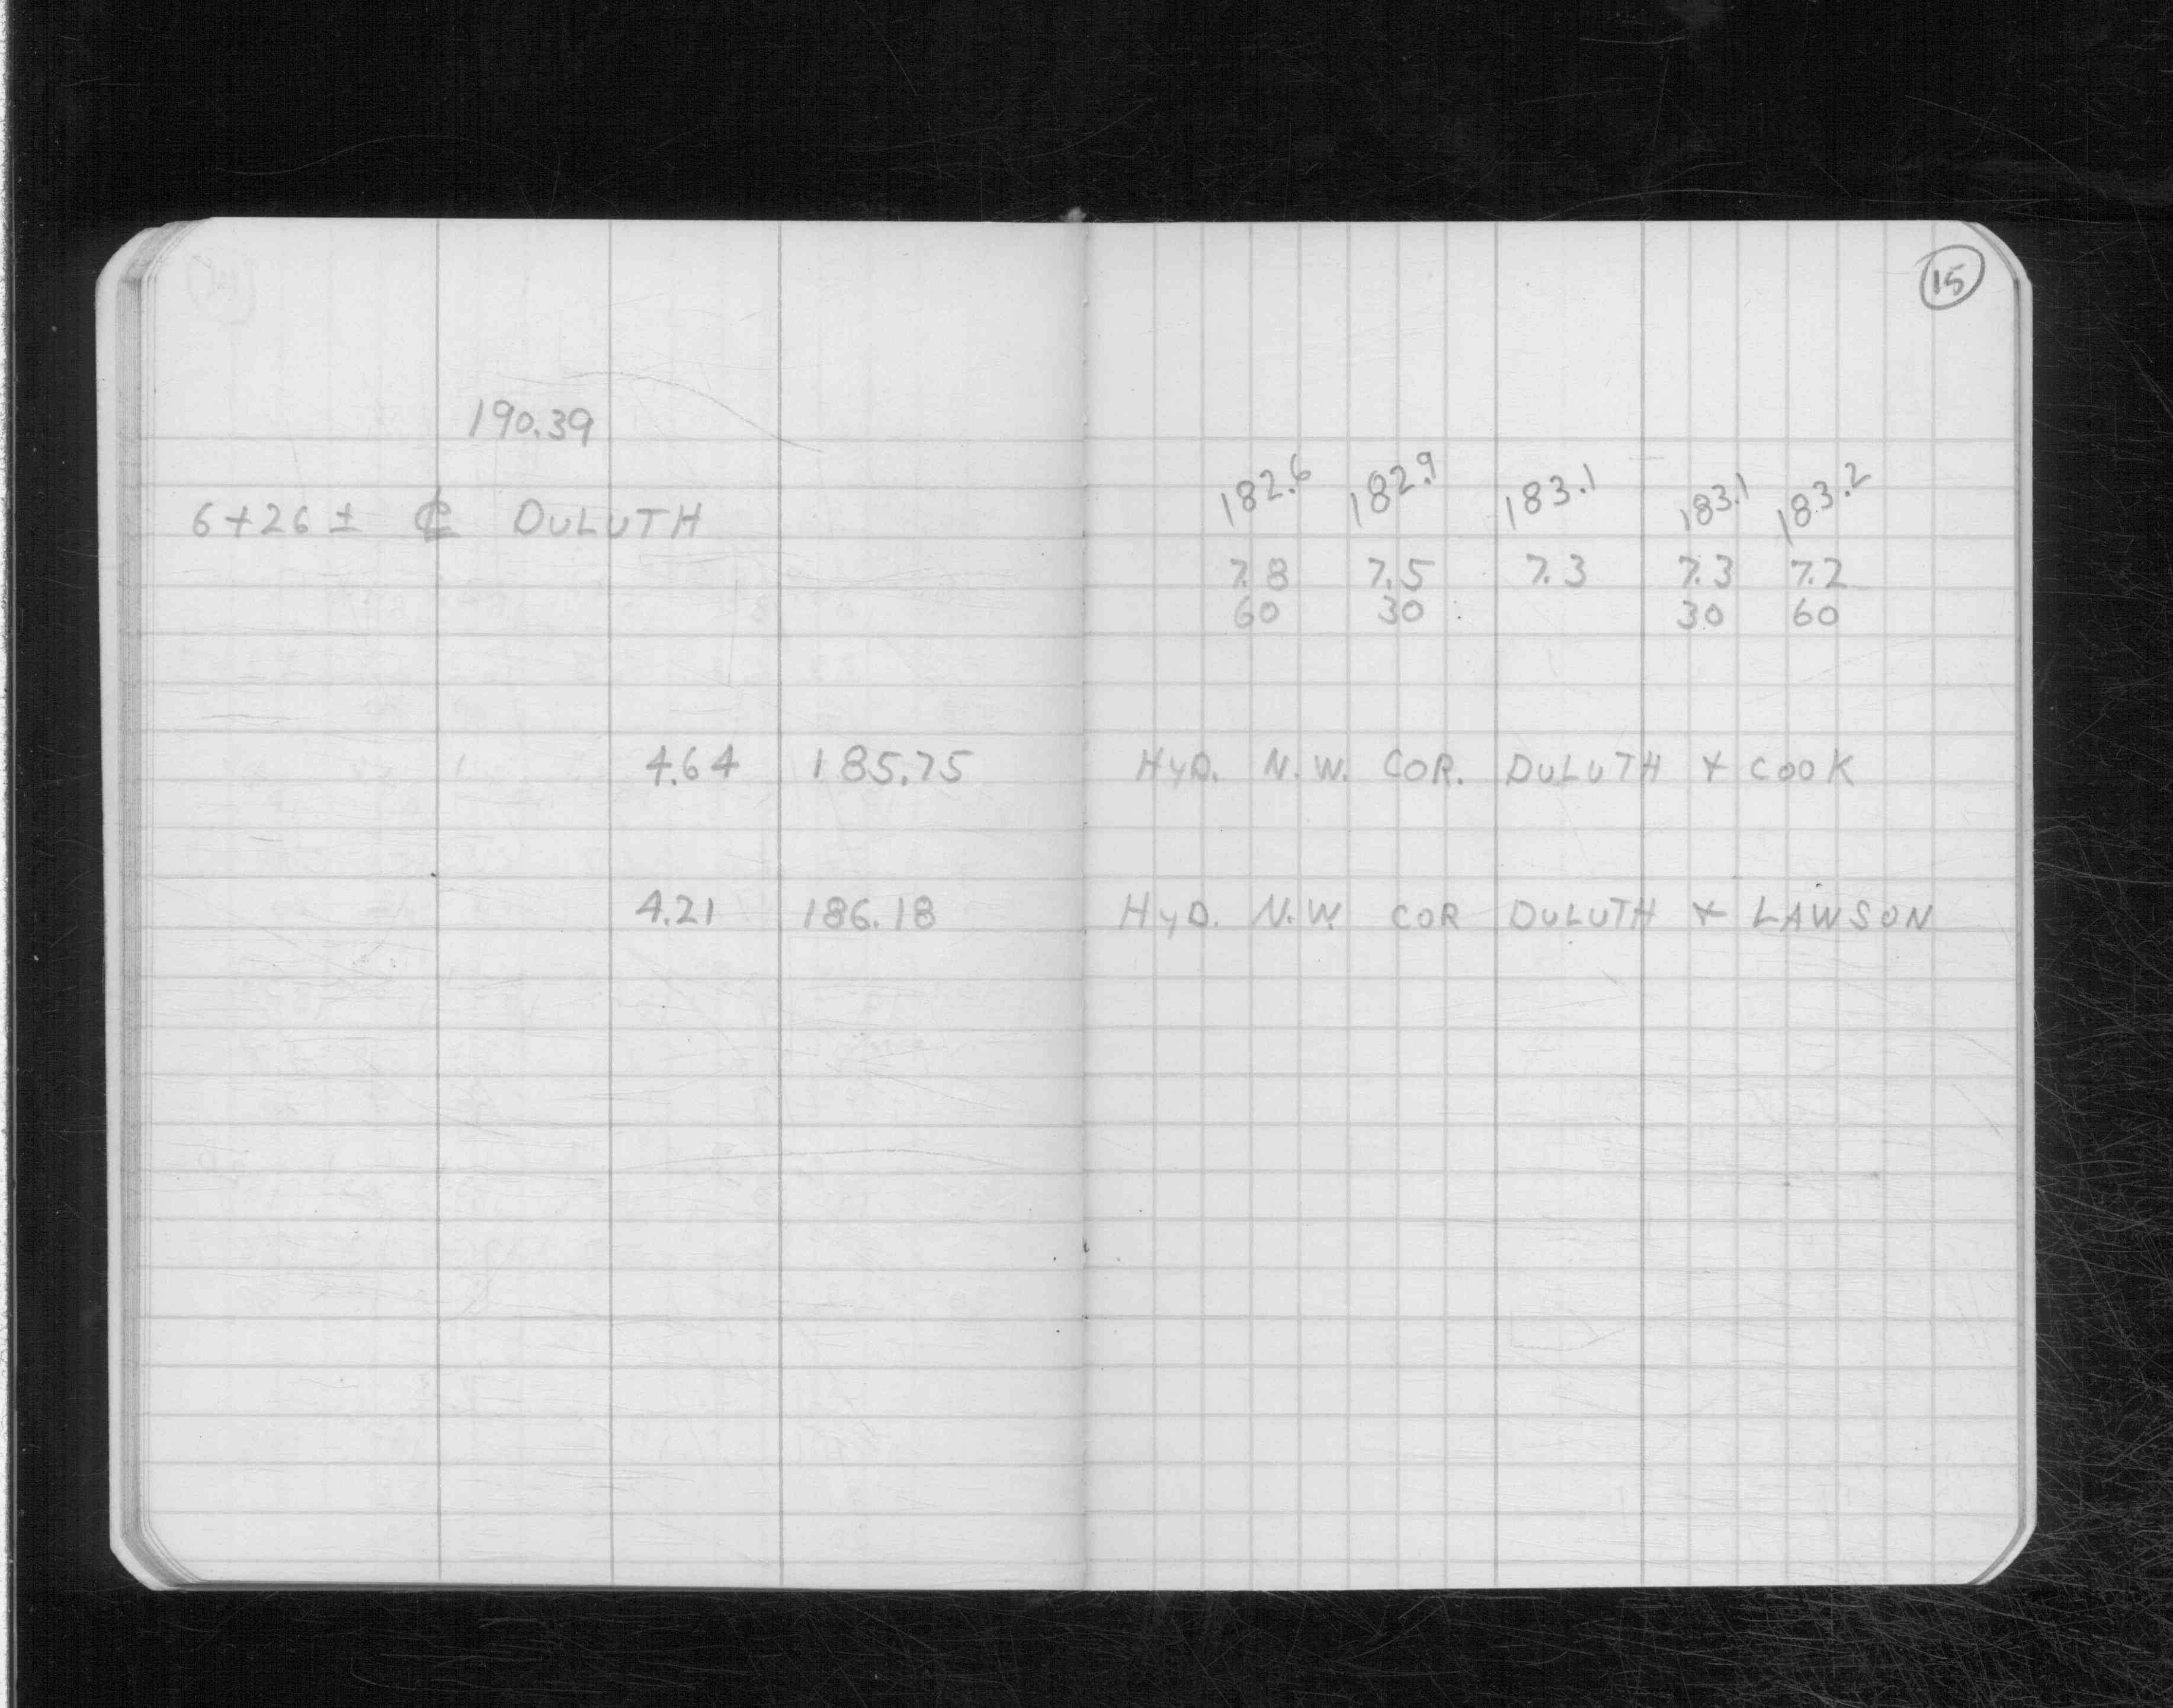 15
190.39
182.6 182.9 183.1 183.1 183.2
6+26 ± ℄ DULUTH
7.8 7.5 7.3 7.3 7.2
60 30 30 60
4.64 185.75 HYD. N.W. COR. DULUTH & COOK
4.21 186.18 HYD. N.W. COR DULUTH & LAWSON